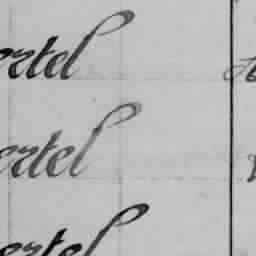 ertel
ertel
ertel